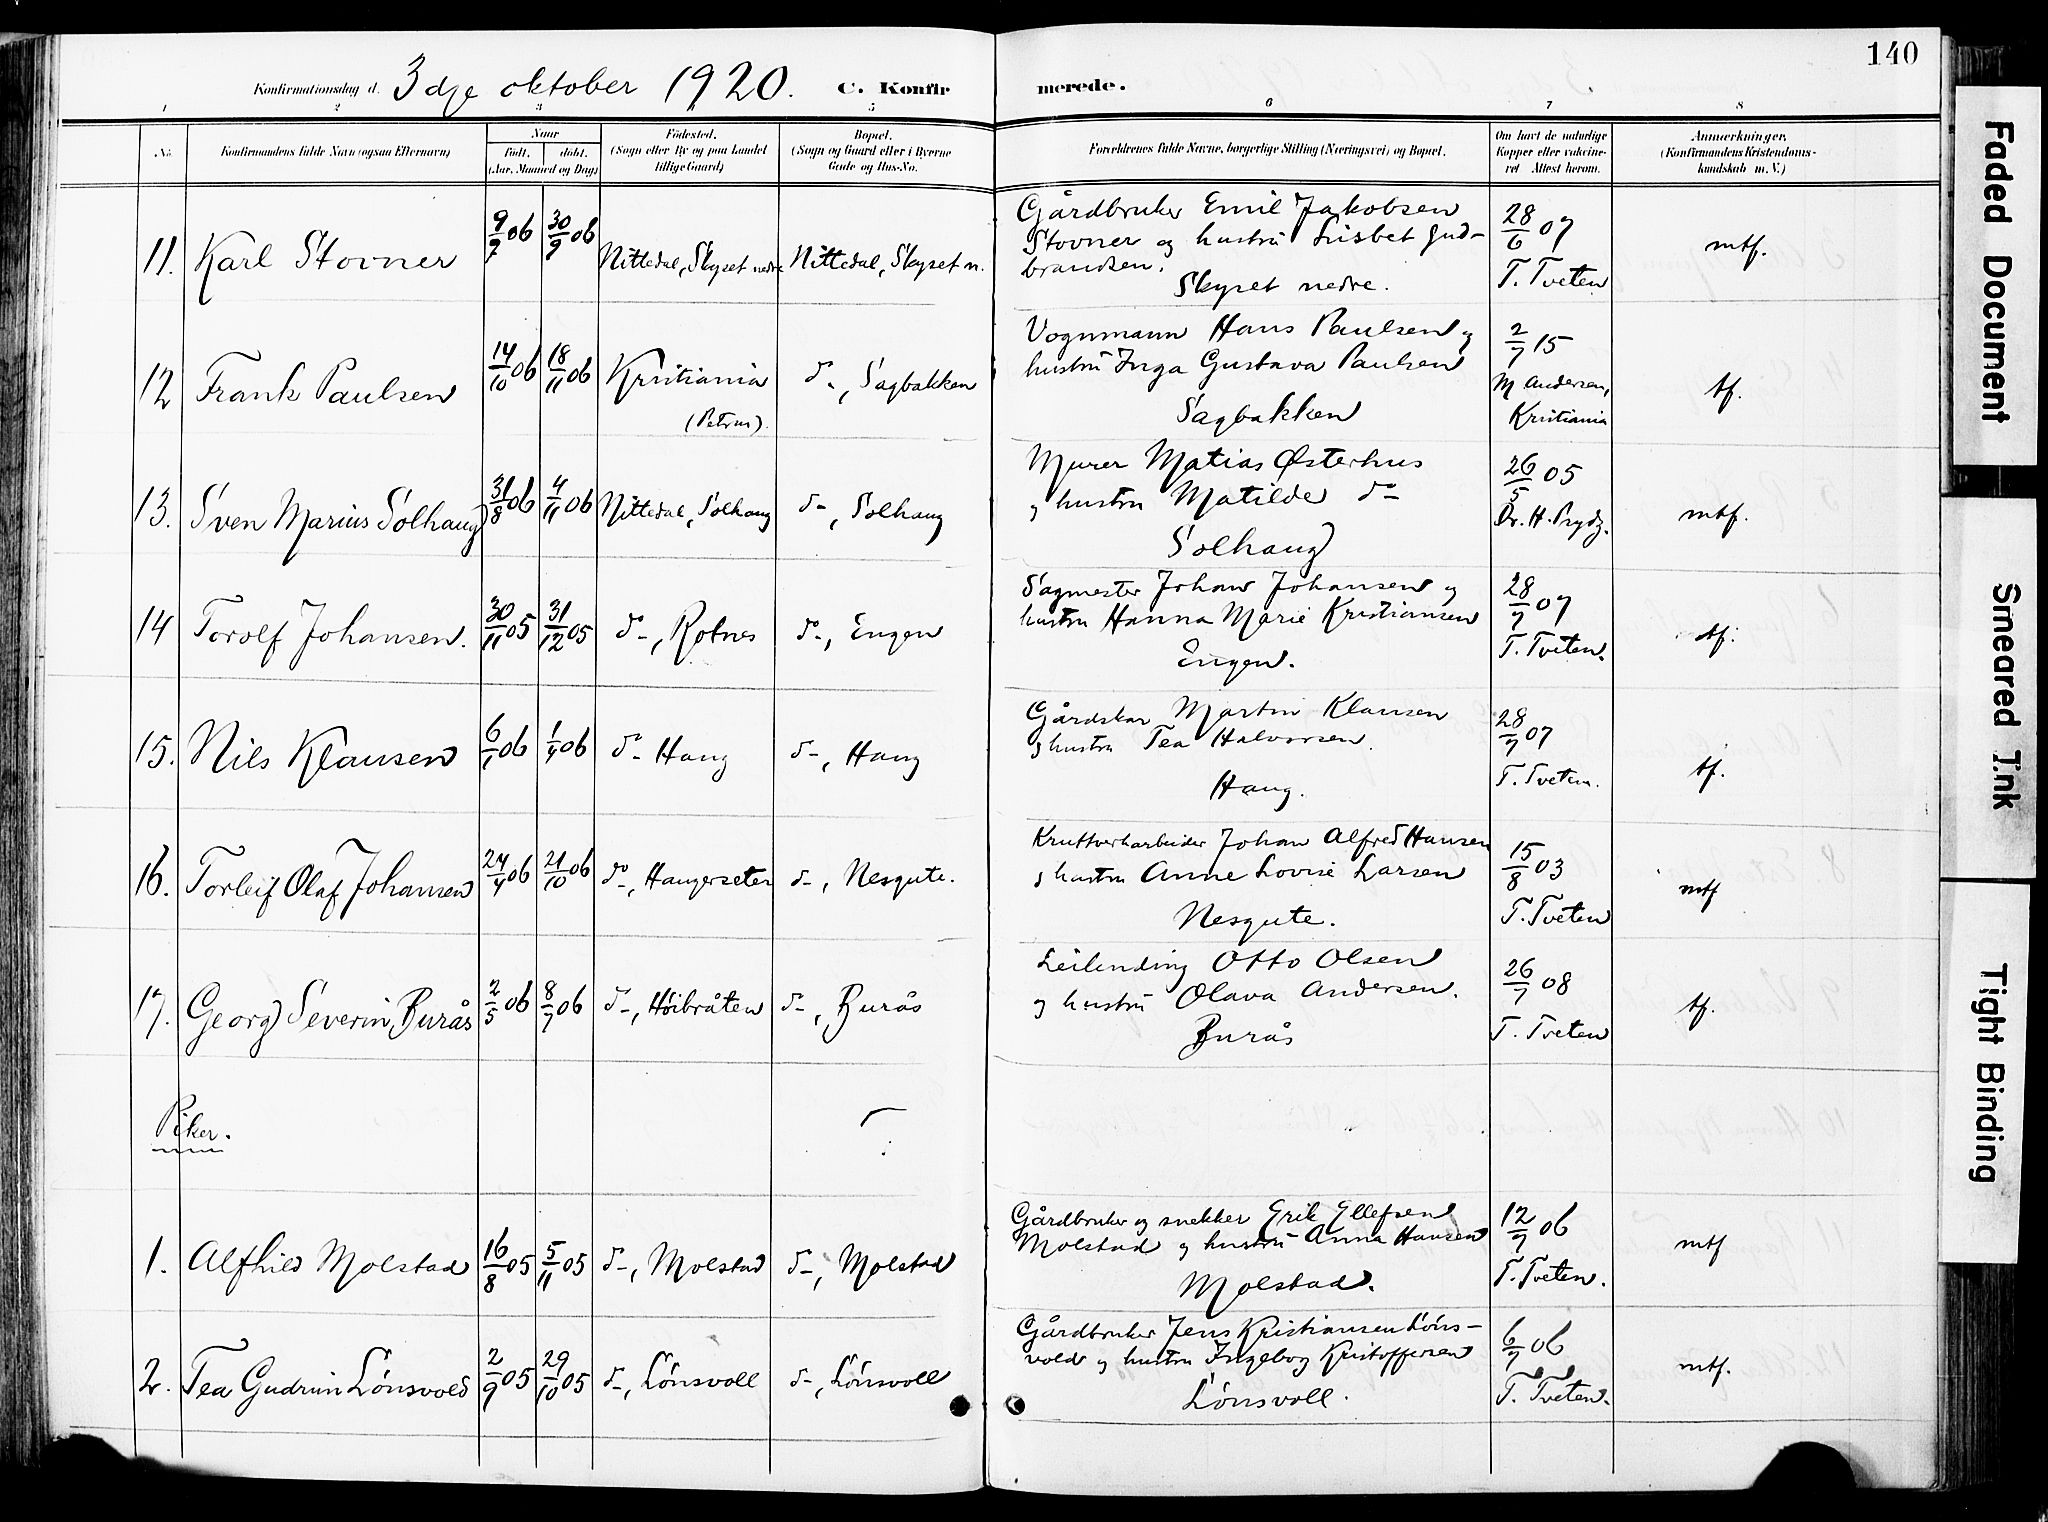 140
Konfirmationsdag d. 3dje oktober 1920. C. Konfirmerede.
1 2 3 4 5 6 7 8
No. Konfirmandens fulde Navn (ogsaa Efternavn) Naar født. døbt. (Aar, Maaned og Dag) Fødested. (Sogn eller By og paa Landet tillige Gaard) Bopæl. (Sogn og Gaard eller i Byerne Gade og Hus-No. Forældrenes fulde Navne, borgerlige Stilling (Næringsvei) og Bopæl. Om havt de naturlige Kopper eller vaccineret Attest herom. Anmærkninger. (Konfirmandens Kristendomskundskab m. V.)
11. Karl Stovner 9/7 06 30/9 06 Nittedal, Skyset nedre Nittedal, Skyset n.
Gårdbruker Emil Jakobsen
Stovner og hustru Lisbet Gud-
brandsen.
Skyset nedre.
28/6 07
T. Tveten
mtf.
12 Frank Paulsen 14/10 06 18/11 06 Kristiania
(Petrus).
do, Sagbakken
Vognmann Hans Paulsen og
hustru Inga Gustava Paulsen
Sagbakken
2/7 15
M Andersen,
Kristiania
tf.
13. Sven Marius Solhaug 31/8 06 4/11 06 Nittedal, Solhaug do, Solhaug
Murer Matias Østerhus
og hustru Matilde do
Solhaug
26/5 05
Dr. H. Prydz.
mtf.
14 Torolf Johansen. 30/11 05 31/12 05 do, Rotnes do, Engen
Sagmester Johan Johansen og
hustru Hanna Marie Kristiansen
Engen.
28/7 07
T. Tveten.
tf.
15. Nils Klausen 6/1 06 1/4 06 do Haug do, Haug
Gårdskar Martin Klausen
og hustru Tea Halvorsen.
Haug.
28/7 07
T. Tveten.
tf.
16. Torleif Olaf Johansen 24/4 06 21/10 06 do, Haugerseter do, Nesgute.
Kruttverkarbeider Johan Alfred Hansen
og hustru Anne Lovise Larsen
Nesgute.
15/8 03
T. Tveten
mtf
17. Georg Severin Burås 2/5 06 8/7 06 do, Høibråten do, Burås
Leilending Otto Olsen
og hustru Olava Andersen.
Burås
26/7 08
T. Tveten
tf.
Piker.
1. Alfhild Molstad 16/8 05 5/11 05 do, Molstad do, Molstad
Gårdbruker og snekker Erik Ellefsen
Molstad og hustru Anna Hansen
Molstad.
12/7 06
T. Tveten.
mtf
2. Tea Gudrun Lønsvold 2/9 05 29/10 05 do, Lønsvoll do, Lønsvoll
Gårdbruker Jens Kristiansen Løns-
vold og hustru Ingeborg Kristoffersen
Lønsvoll.
6/7 06
T. Tveten.
mtf.
Faded Document
Smeared Ink
Tight Binding